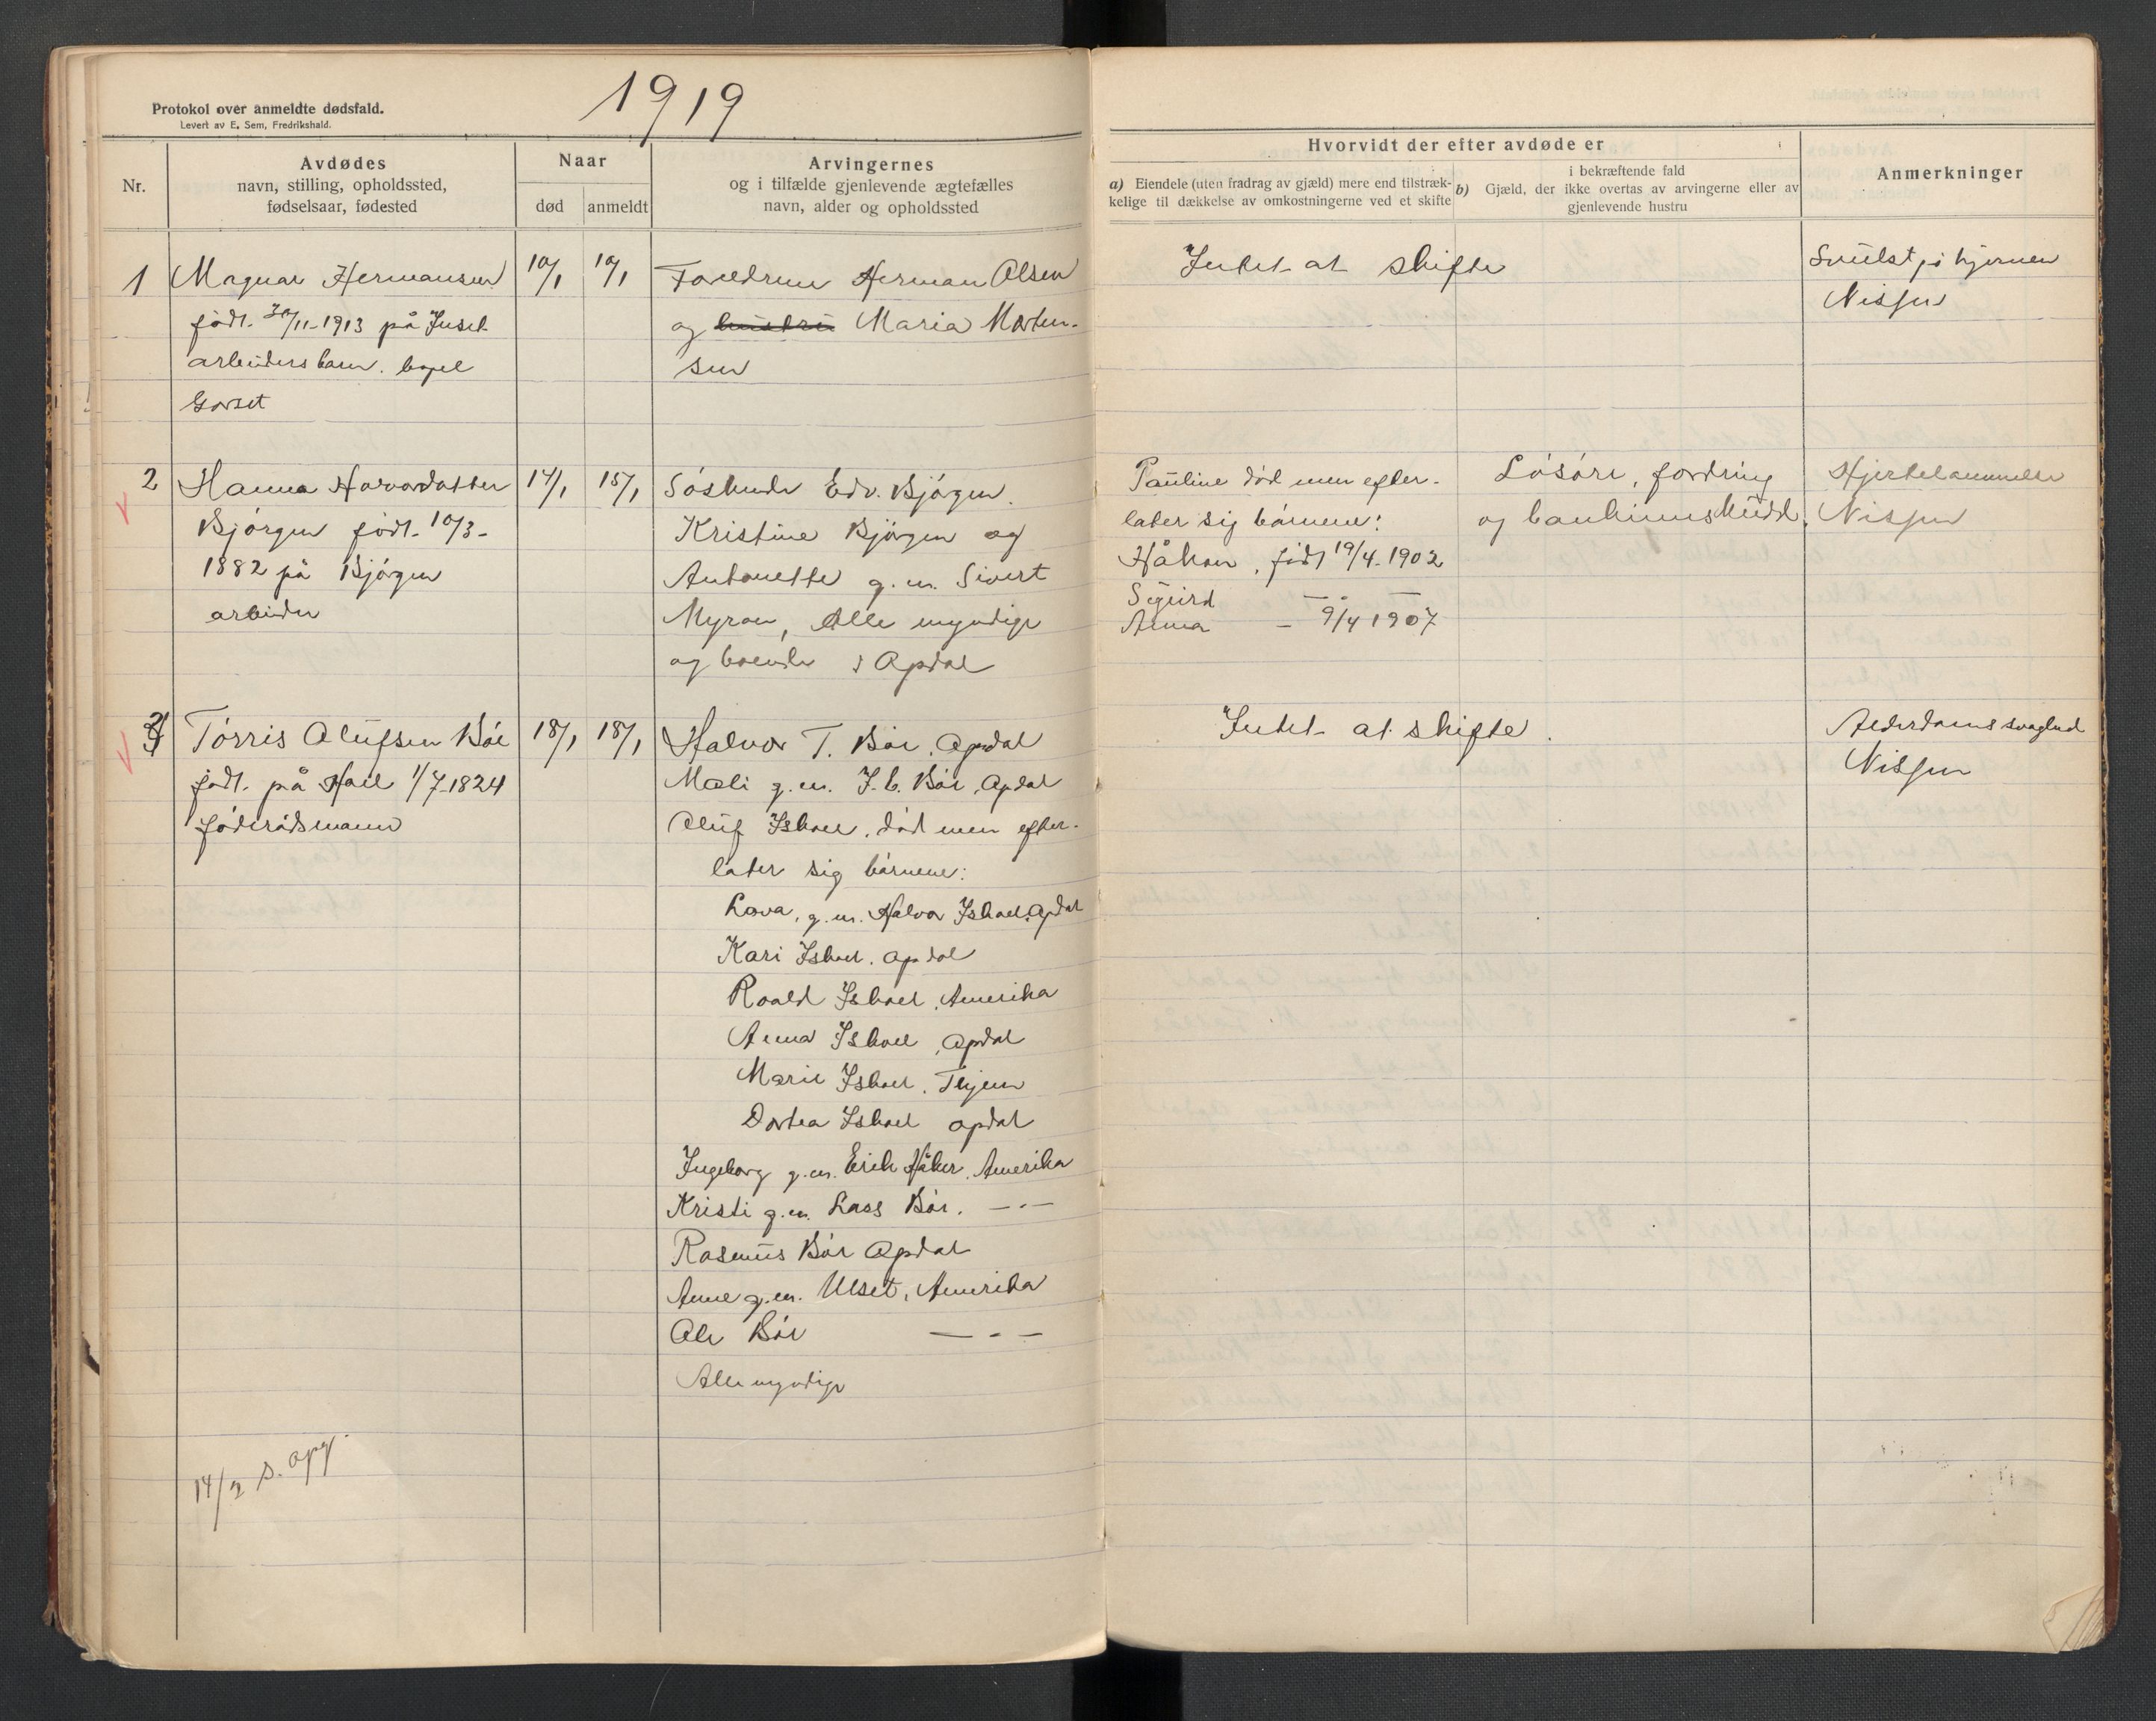 1919
Protokol over anmeldte dødsfald.
Levert av E. Sem, Fredrikshald.
Nr.
Avdødes
navn, stilling, opholdssted,
fødselsaar, fødested
Naar
død
anmeldt
Arvingernes
og i tilfælde gjenlevende ægtefælles
navn, alder og opholdssted
Hvorvidt der efter avdøde er
a) Eiendele (uten fradrag av gjæld) mere end tilstræk-
kelige til dækkelse av omkostningerne ved et skifte
b) i bekræftende fald
Gjæld, der ikke overtas av arvingerne eller av
gjenlevende hustru
Anmerkninger
1
Magnar Hermansen
født. 30/11-1913 på
arbeidersbarn. bopel
Gorset
10/1
10/1
Foreldrene Herman Olsen
og hustru Maria Morten-
sen
Intet at skifte
Svulst på hjernen
Nissen
2
Hanna Havardatter
Bjørgen født. 10/3-
1882 på Bjørgen
arbeider
14/1
15/1
Søskende Edv. Bjørgen.
Kristine Bjørgen og
Antonette g.m. Sivert
Myran, Alle myndige
og boende i Opdal
Pauline død men efter-
later sig børnene:
Håkon, født 19/4-1902
Sigurd — " —
Anna — 9/4 1907
Løsøre, fordring
og bankinnskudd.
Hjertelammelse
Nissen
3
Tørris Olufsen Böe
født. på Hoel 1/7-1824
føderådsmann
18/1
18/1
Halvor T. Böe, Opdal
Mali g.m. J. E. Böe, Opdal
Oluf Ishoel, død men efter-
later sig børnene:
Lova, g.m. Halvor Ishoel, Opdal
Kari Ishoel, Opdal
Roald Ishoel, Amerika
Anna Ishoel, Opdal
Marie Ishoel,
Dortea Ishoel Opdal
Ingeborg g.m. Erik Håker, Amerika
Kristi g.m. Lars Böe. — " —
Rasmus Böe Opdal
Anne g.m. Ulset, Amerika
Ole Böe — " —
Alle myndige
Intet at skifte.
Alderdomssvaghed
Nissen
14/2 s. opg.